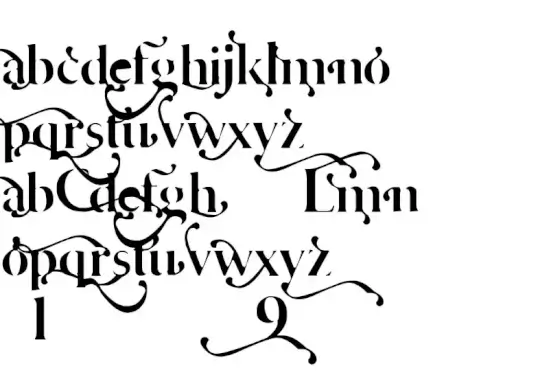 abcdefghijklmno
pqrstuvwxyz
abCdefgh Lmn
opqrstuvwxyz
1 9